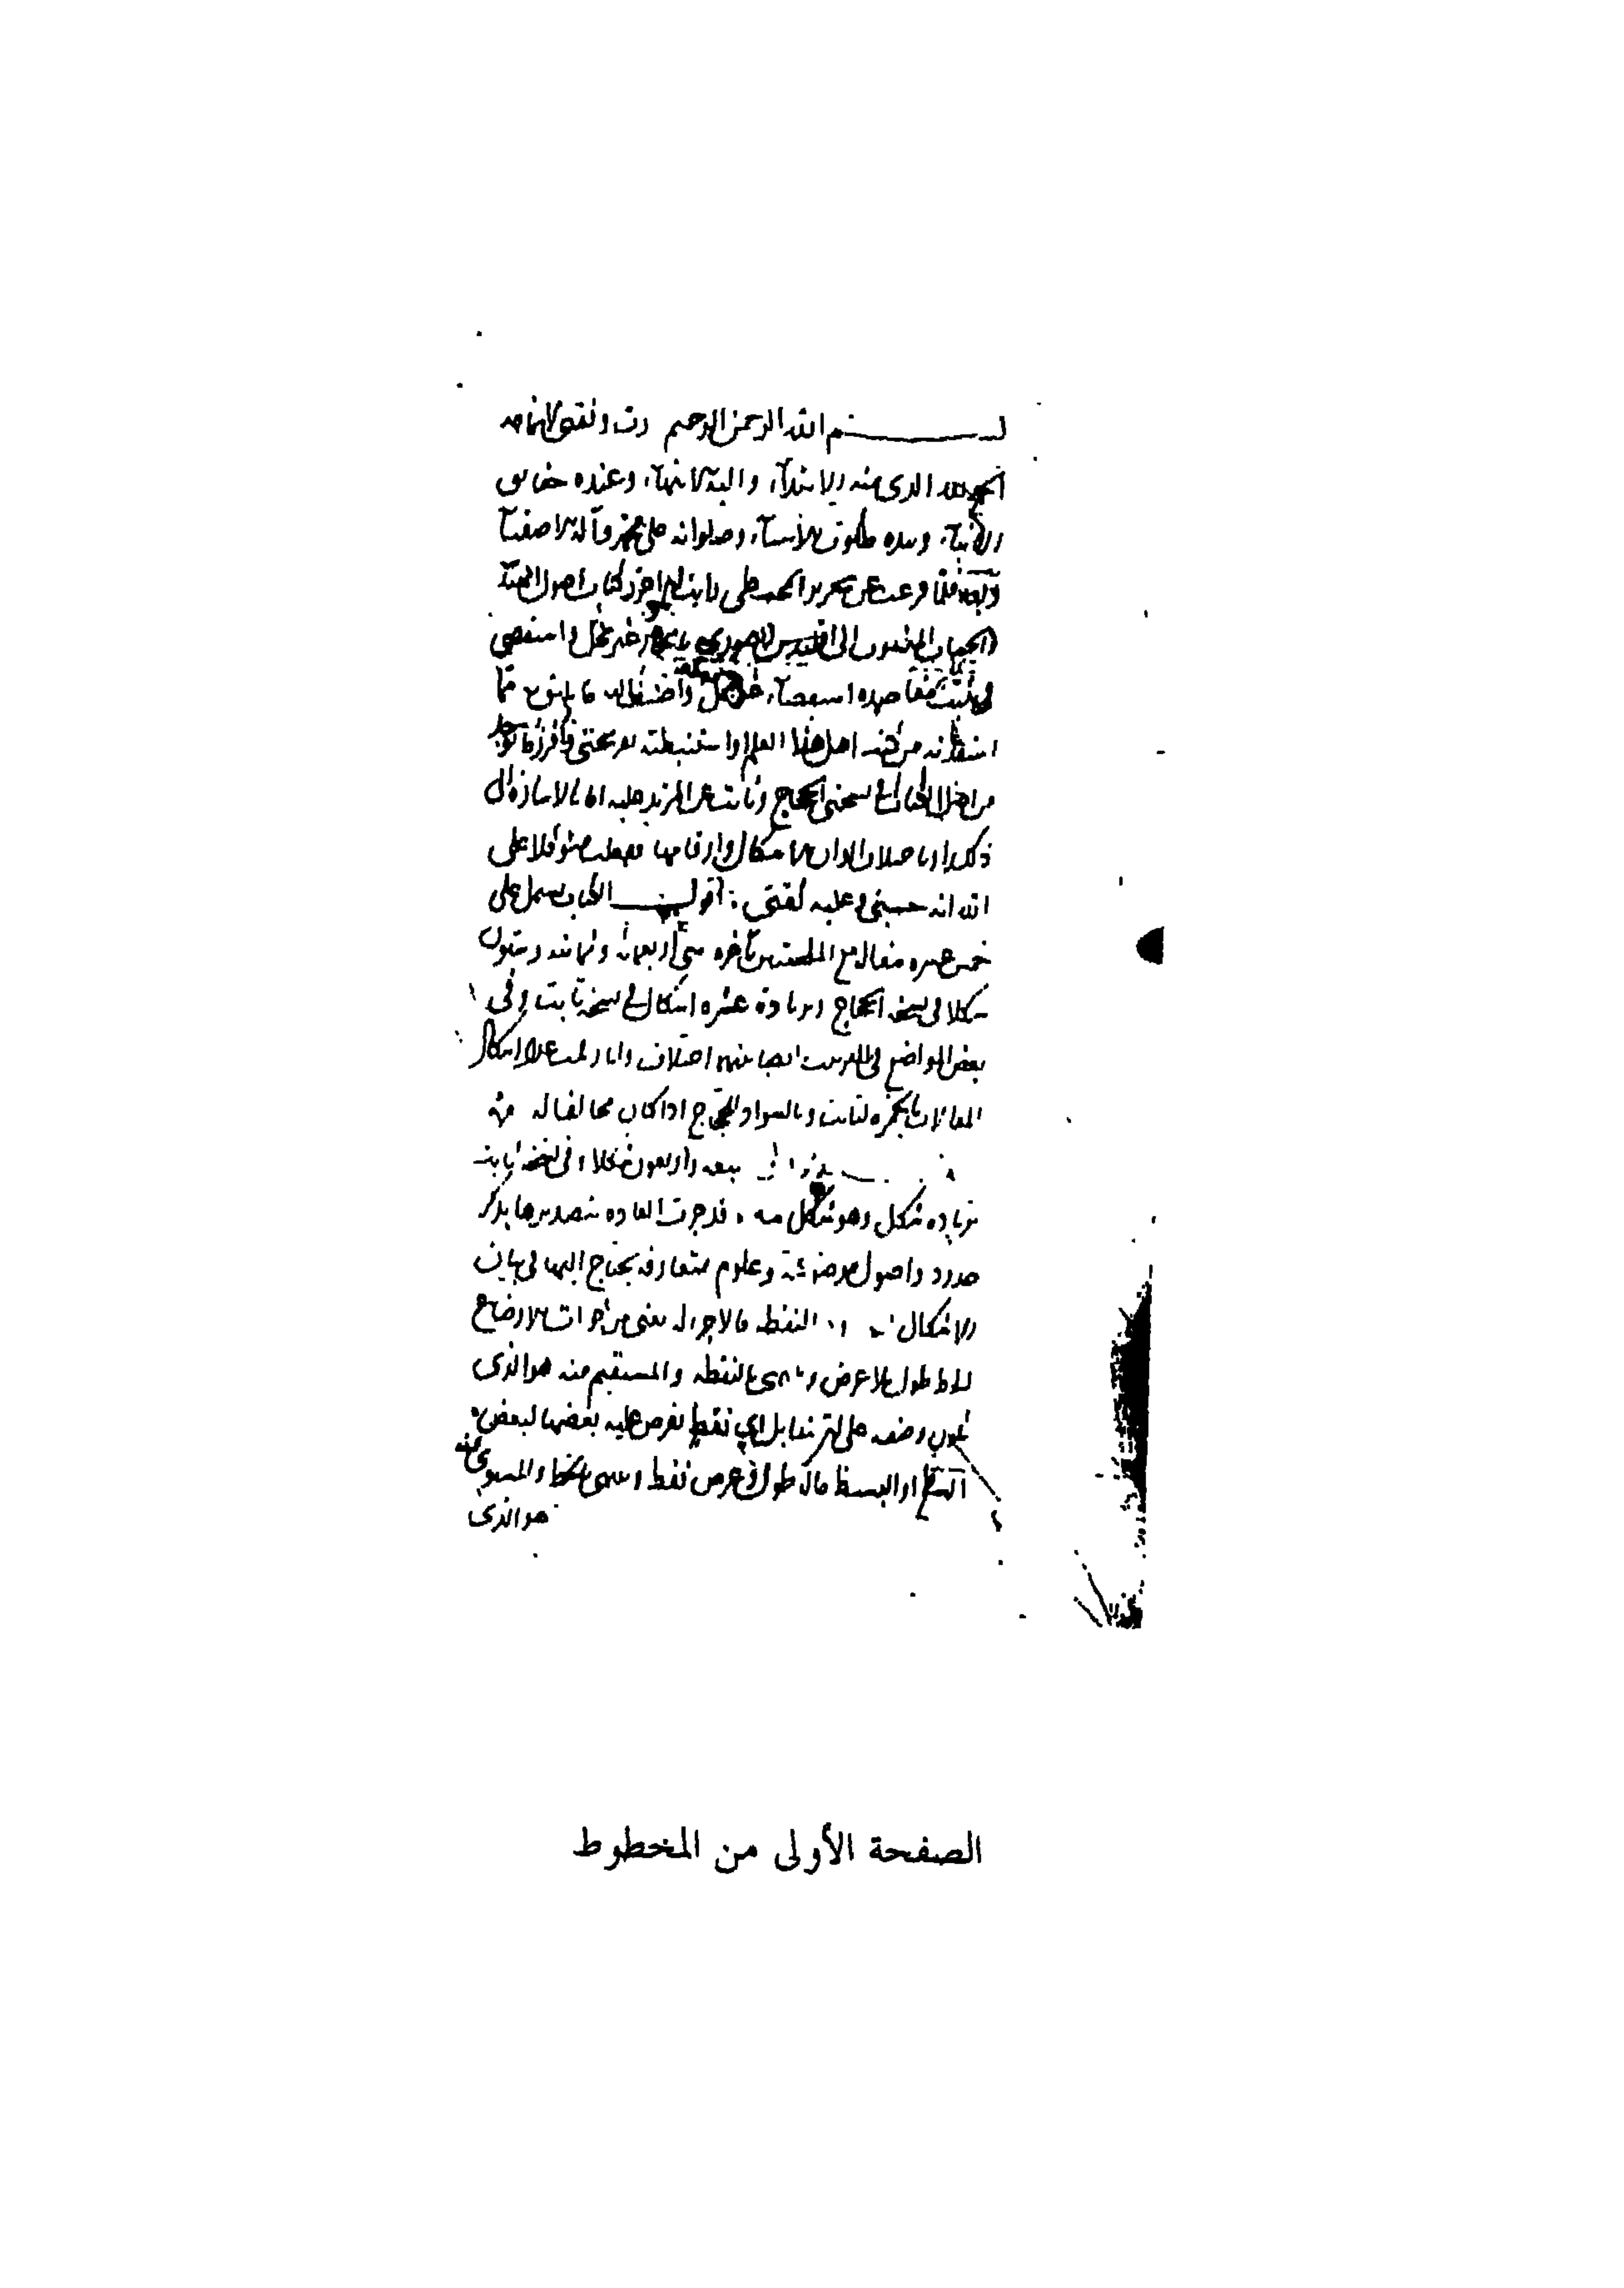 بسم الله الرحمن الرحيم رب وفقني لاتمامه
الحمد لله الذي منه الابتدآء واليه الانتهآء وعنده حقايق
الانبآء وبيده ملكوت الاشيآء وصلواته على محمد وآله الاصفيآ
وبعد فلما فرغت عن تحرير المجسطي رايت ان احرر كتاب اصول الهندسة
والحساب المنسوب الى اقليدس الصوري بايجاز غير مخل واستقصي
في تثبيت مقاصده استقصآء غير ممل واضيف اليه ما يليق به مما
استفدته من كتب اهل هذا العلم او استنبطته بقريحتي وافرز ما يوجد
من اصل الكتاب في نسختي الحجاج وثابت عن المزيد عليه اما بالاشارة الى
ذلك او باختلاف الوان الاشكال وارقامها ففعلت متوكلا على
الله انه حسبي وعليه ثقتي اقول الكتاب يشتمل على
خمس عشرة مقالة مع الملحقتين بآخره وهي اربعمائة وثمانية وستون
شكلا في نسخة الحجاج وبزيادة عشرة اشكال في نسخة ثابت وفي
بعض المواضع في الترتيب ايضا بينهما اختلاف وانا رقمت عدد اشكال
المقالات بالحمرة لثابت وبالسواد للحجاج اذا كان مخالفا له
سبعة واربعون شكلا وفي نسخة ثابت
بزيادة شكل وهو شكل مه قد جرت العادة بتصديرها بذكر
حدود واصول موضوعة وعلوم متعارفة يحتاج اليها في بيان
الاشكال النقطة ما لا جزء له يعني من ذوات الاوضاع
الخط طول بلا عرض وينتهي بالنقطة والمستقيم منه هو الذي
يكون وضعه على ان تتقابل اي نقط تفرض عليه بعضها لبعض
السطح او البسيط ما له طول وعرض فقط وينتهي بالخط والمستوي منه
هو الذي
الصفحة الأولى من المخطوط